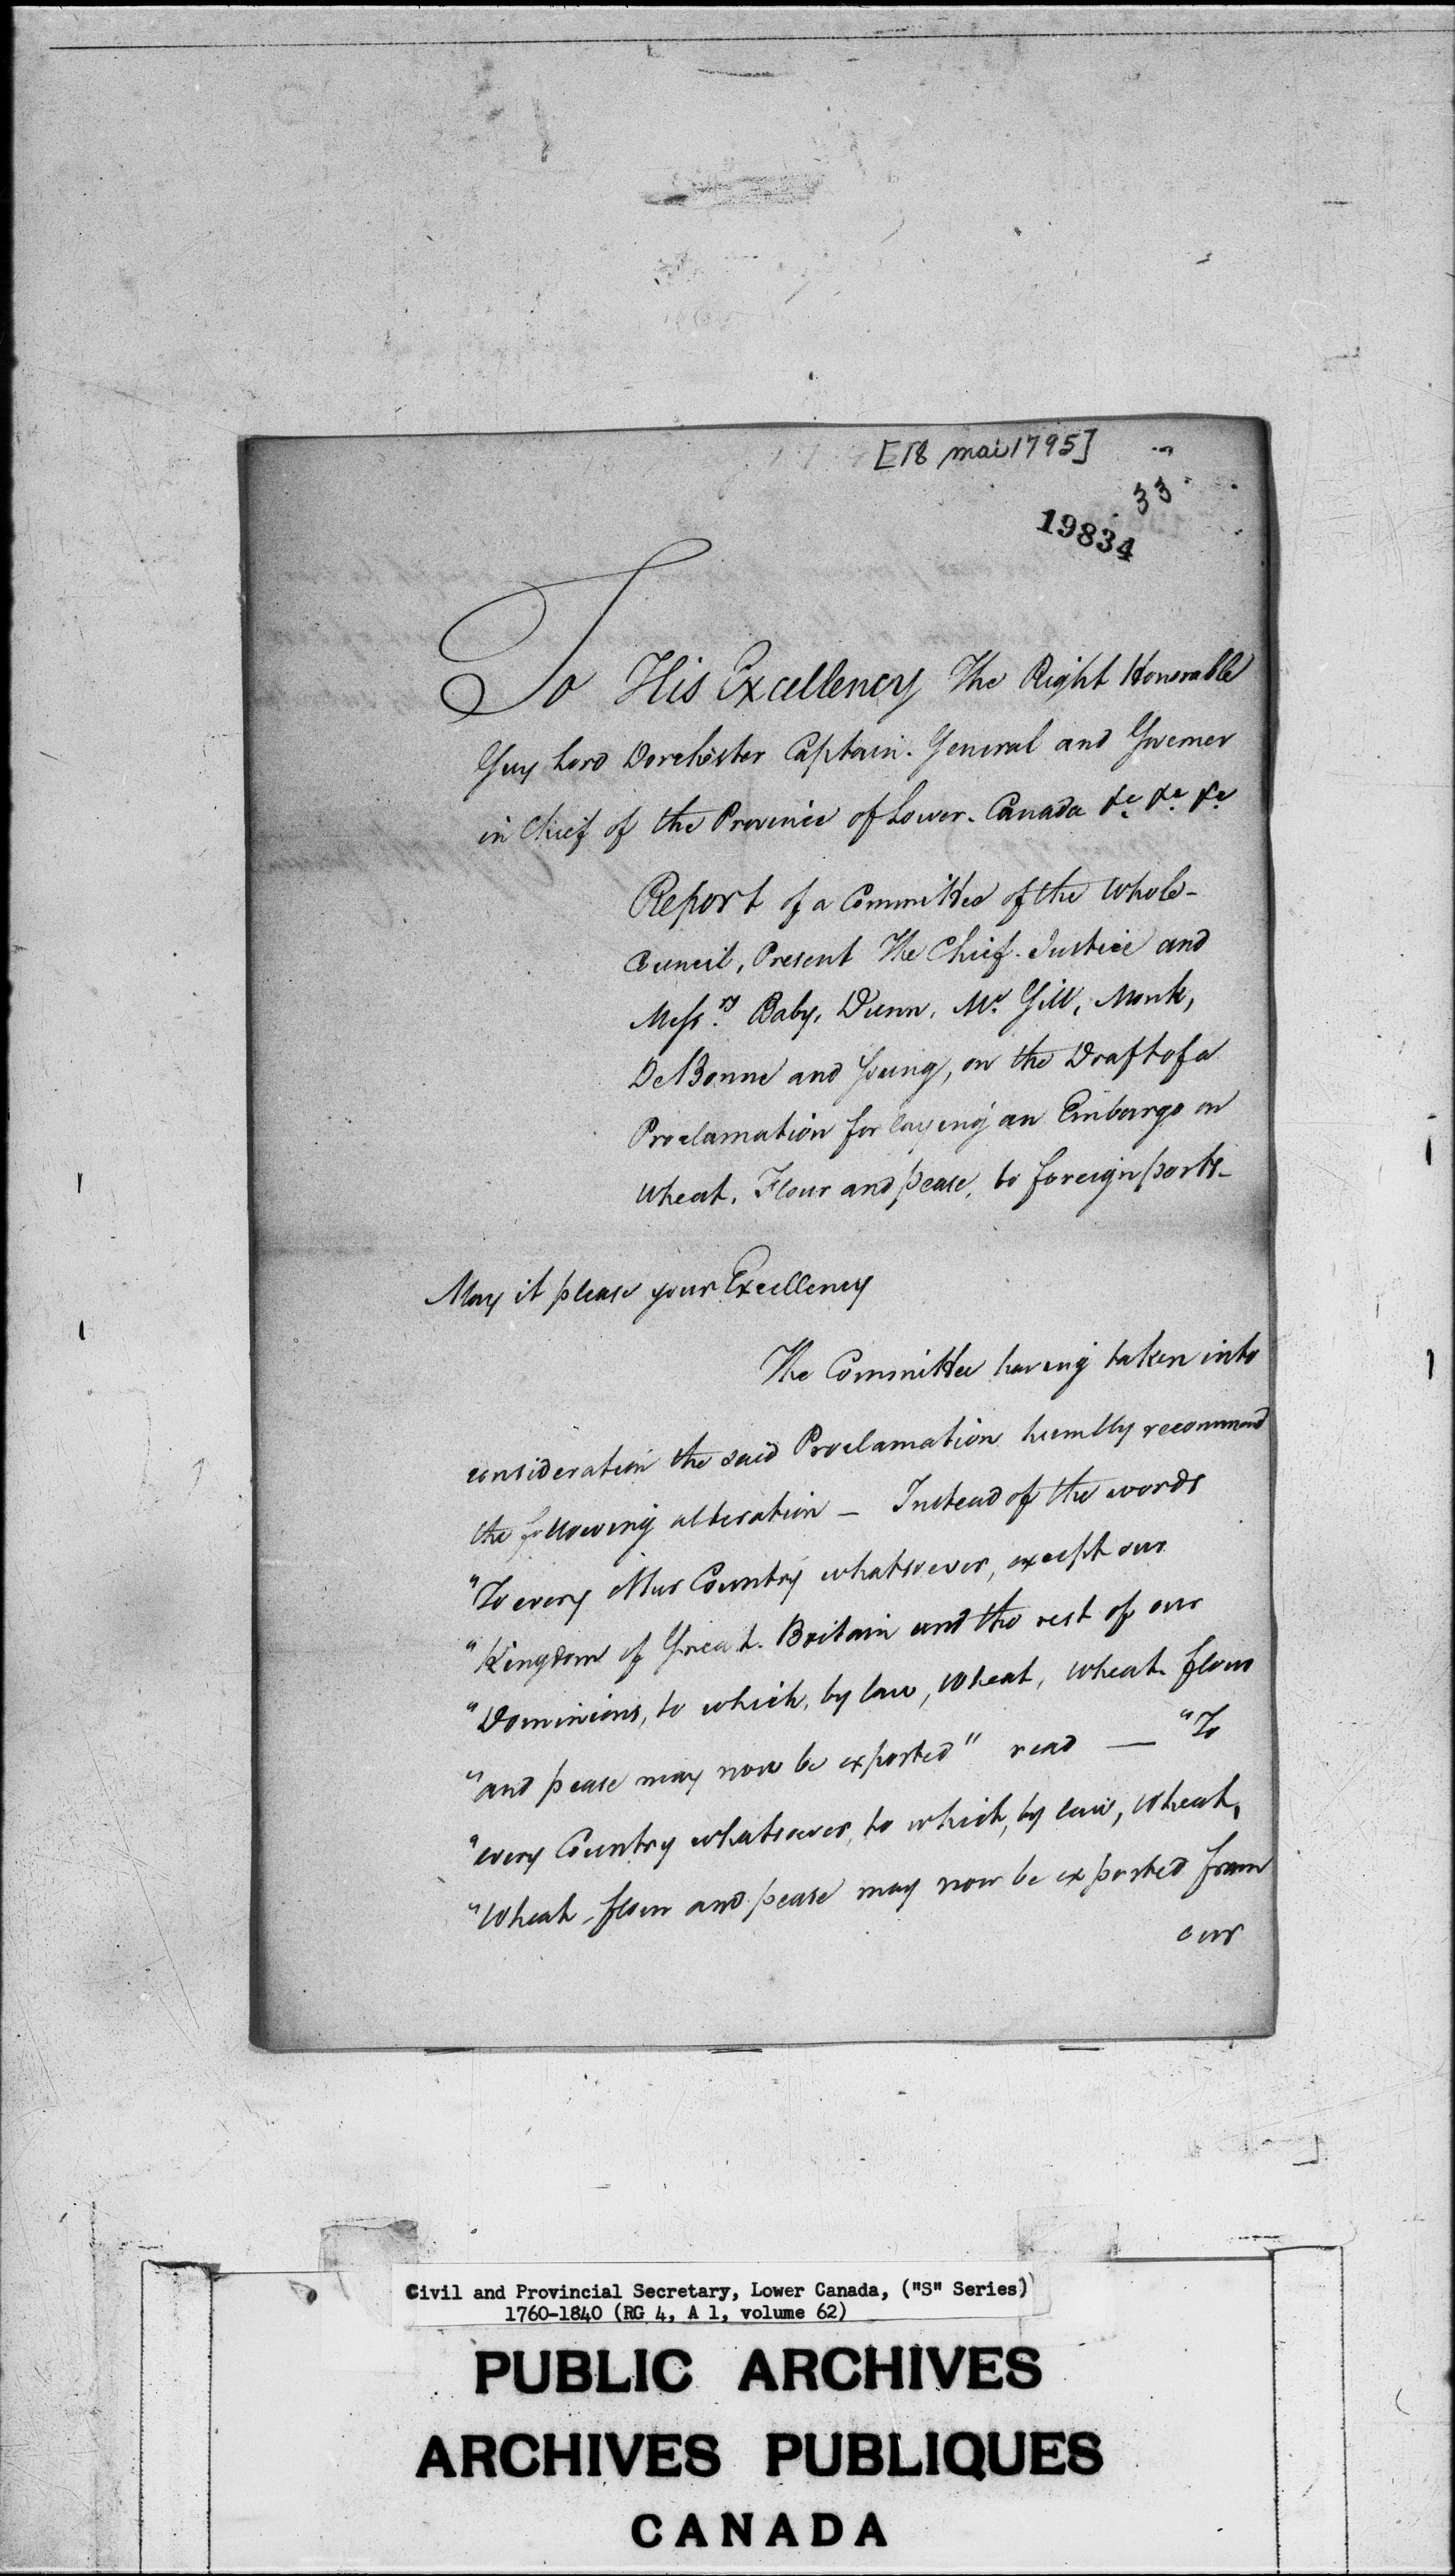 [18 mai 1795]
33
19834
To His Excellency The Right Honorable
Guy Lord Dorchester Captain-General and Governer
in Chief of the Province of Lower-Canada &c &c &c
Report of a Committee of the whole-
Council, Present The Chief-Justice and
Messrs Baby, Dunn, Mc Gill, Monk,
DeBonne and Young, on the Draft of a
Proclamation for laying an Embargo on
Wheat, Flour and pease, to foreign ports-
May it please your Excellency
The Committee having taken into
consideration the said Proclamation humbly recommend
the following alteration - Instead of the words
"To every other Country whatsoever, except our
"Kingdom of Great-Britain and the rest of our
"Dominions, to which, by law, Wheat, Wheat-flour
"and pease may now be exported" read — "To
"every Country whatsoever, to which, by law, Wheat,
"Wheat-flour and pease may now be exported from
our
Civil and Provincial Secretary, Lower Canada, ("S" Series)
1760-1840 (RG 4, A 1, volume 62)
PUBLIC ARCHIVES
ARCHIVES PUBLIQUES
CANADA